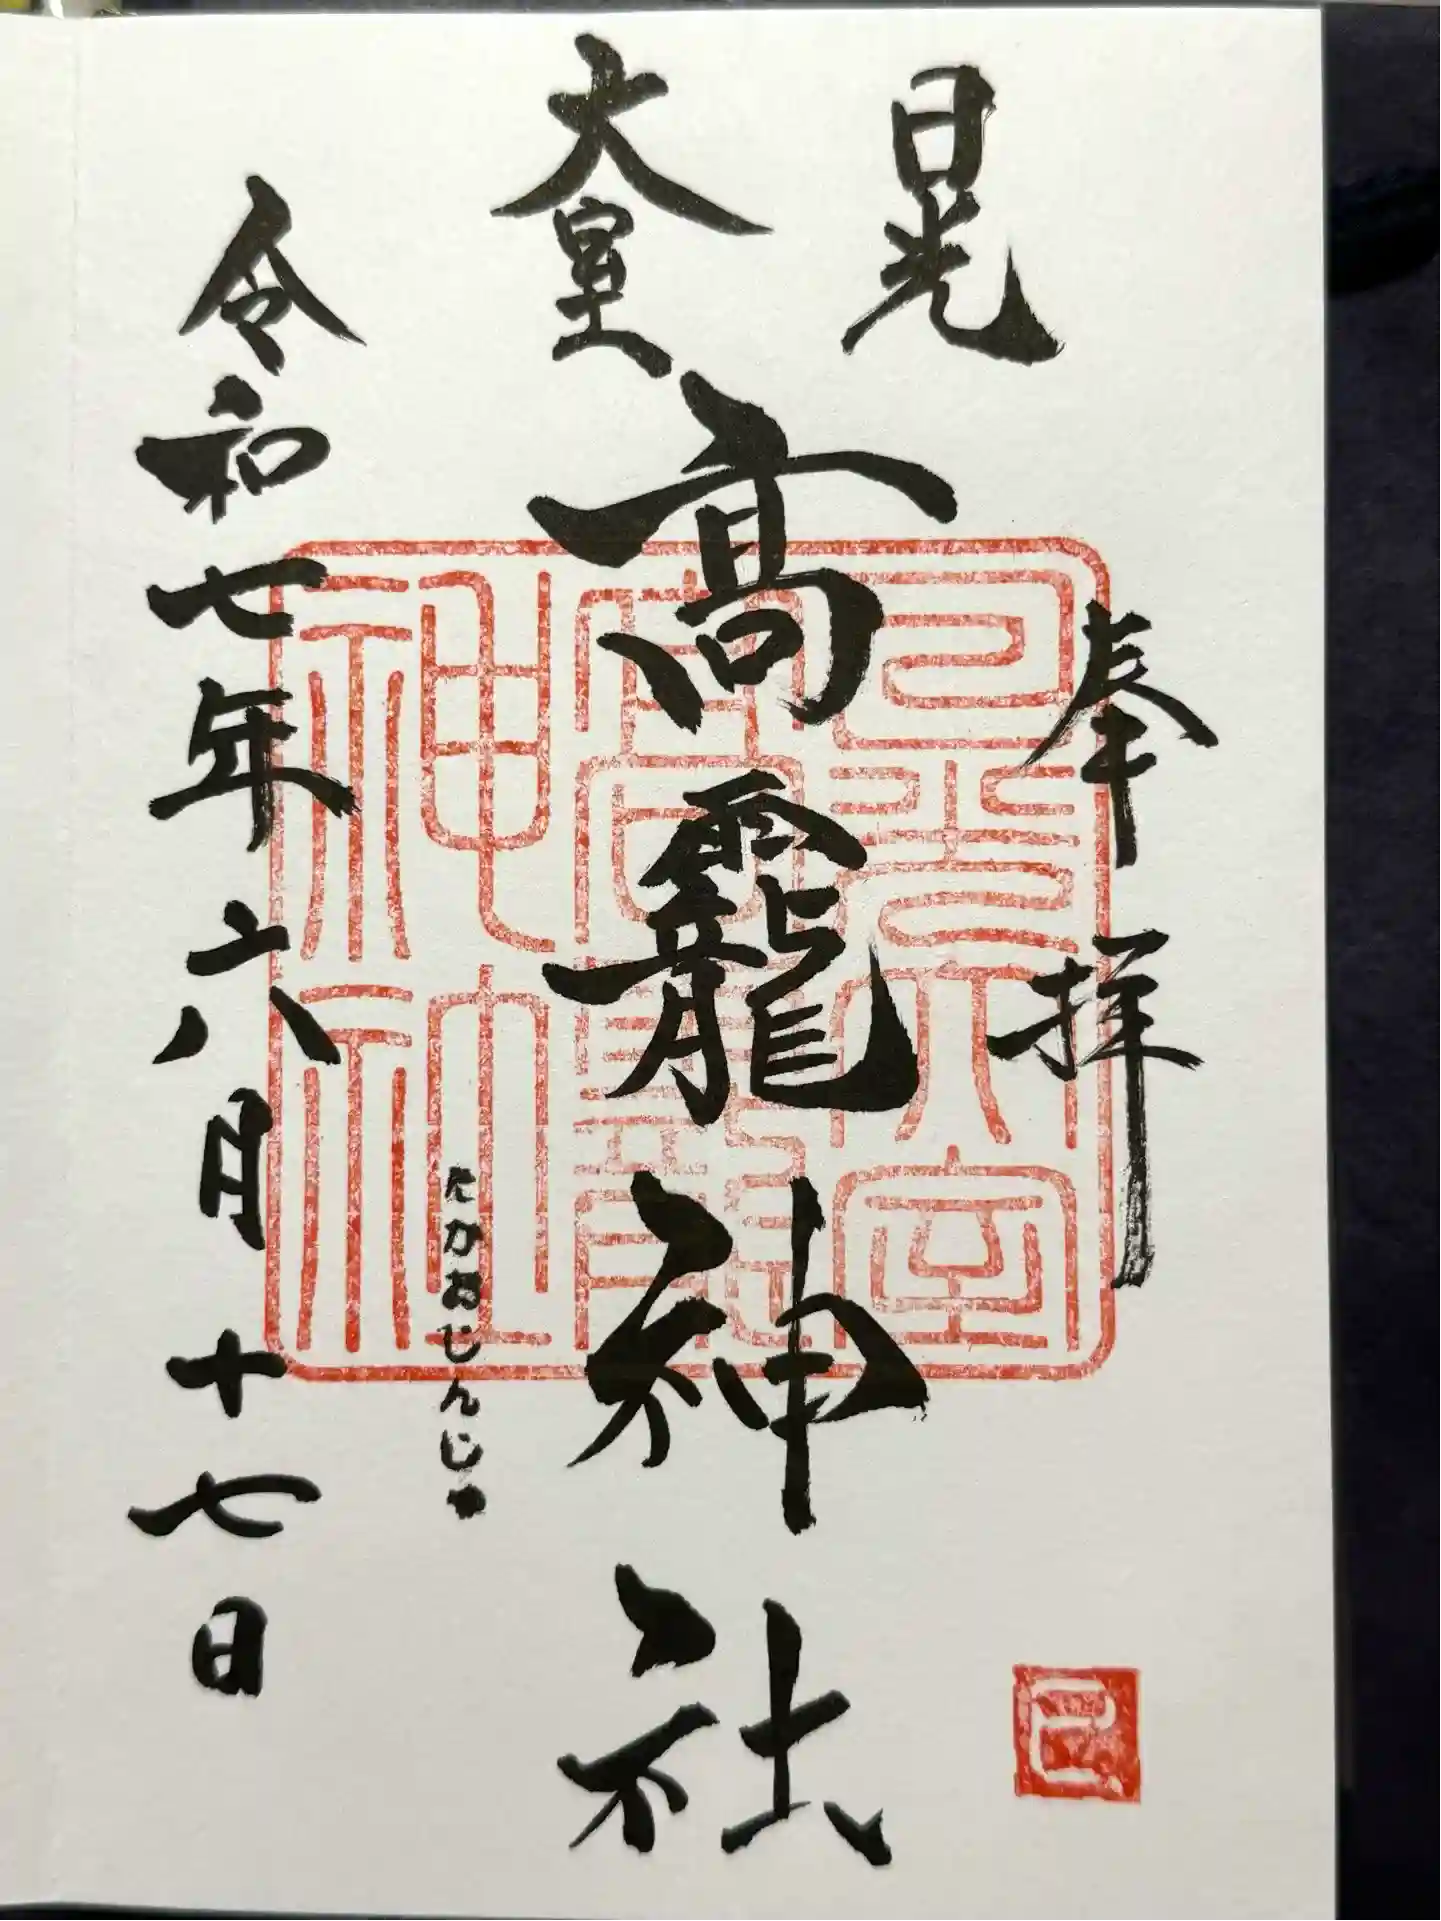 奉拝
日光
大室
髙龗神社
たかおじんじゃ
令和七年六月十七日
日光大室
高龗
神社
巳